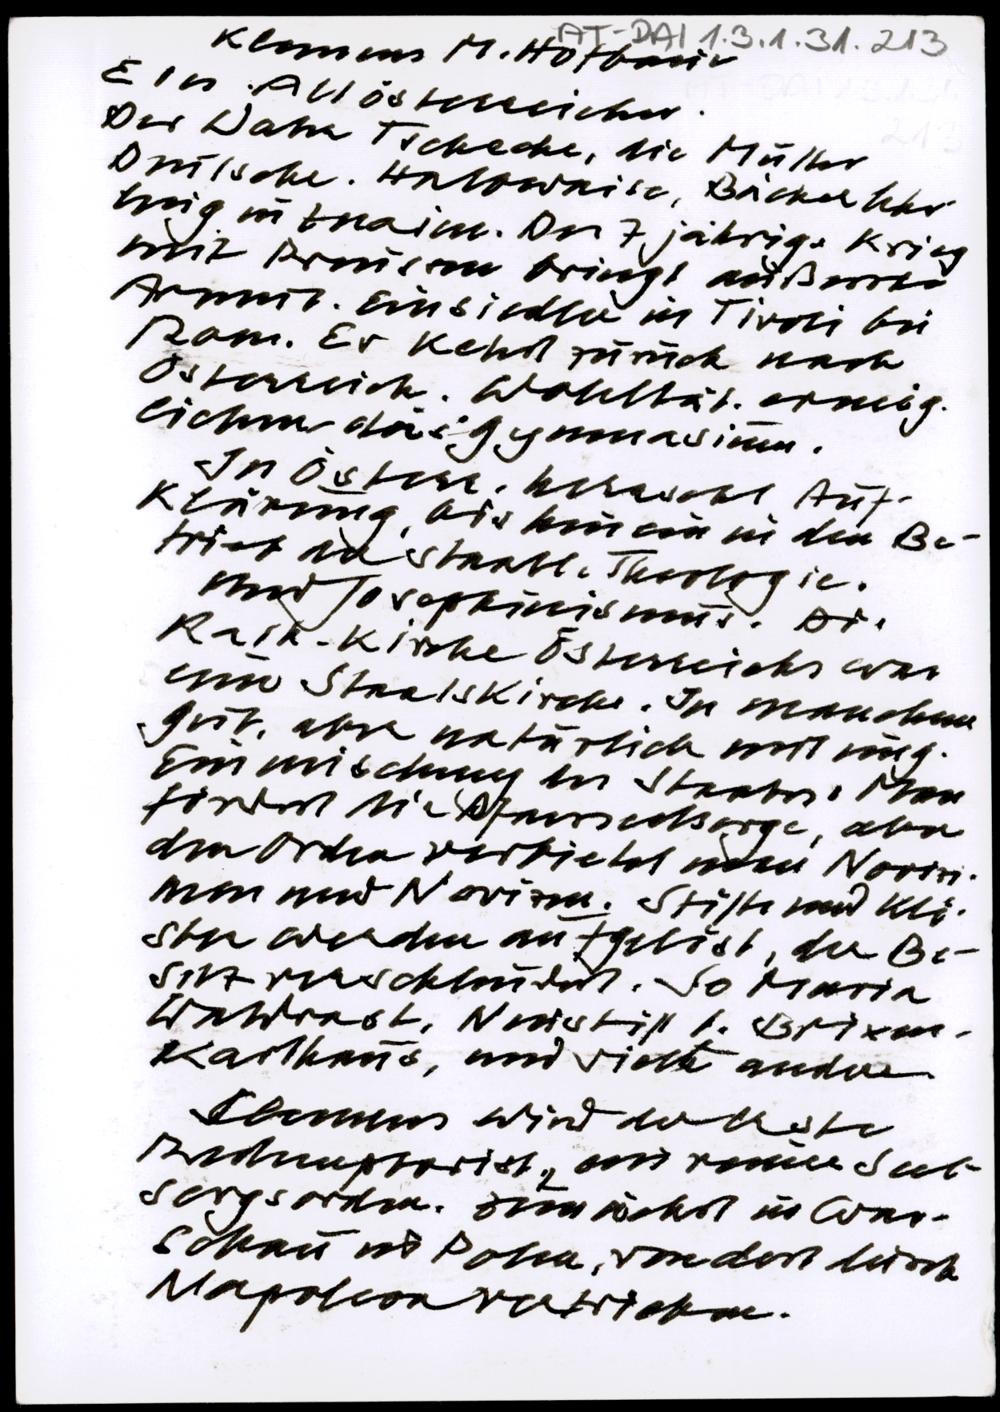 AT-DAI 1.3.1.31.213
Klemens M. Hofbauer
Ein Altösterreicher.
Der Vater Tscheche, die Mutter
Deutsche. Halbwaise, Bäckerlehr
ling in Znaim. Der 7 jährige Krieg
mit Preussen bringt äußerste
Armut. Einsiedler in Tivoli bei
Rom. Er kehrt zurück nach
Österreich. Wohltät. ermög.
lichen das Gymnasium.
In Österr. herrscht Auf-
klärung, bis hinein in den Be-
trieb der staatl. Theologie.
und Josephinismus. Die
Kath. Kirche Österreichs war
eine Staatskirche. In manchem
gut, aber natürlich mit
Einmischung des Staates. Man
fördert die Pfarrseelsorge, aber
den Orden verbietet man Novizi.
nnen und Novizen. Stifte und Klö.
ster werden aufgelöst, der Be-
sitz verschleudert. So Maria
Waldrast, Neustift b. Brixen.
Karthaus, und viele andere.
Clemens wird der erste
Redemptorist, ein Seel-
sorgsorden. zunächst in War-
schau in Polen, von dort durch
Napoleon vertrieben.